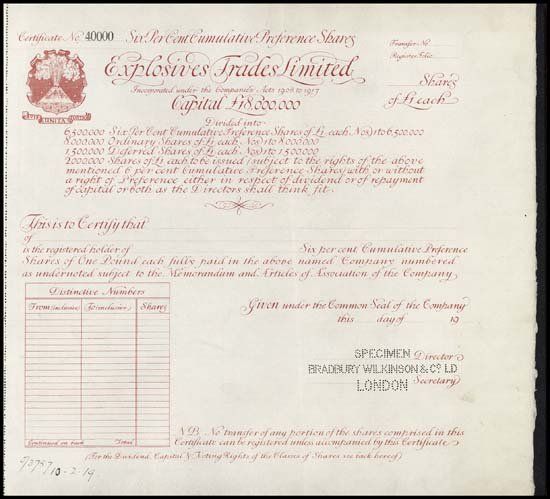 Certificate No. 40000 Six Per Cent Cumulative Preference Shares
Transfer No.
Register Folio
Explosives Trades Limited
Incorporated under the Companies Acts 1908 to 1917
Capital £18,000,000
Shares
of £1 each
VITA UNITA FORTIOR
Divided into
6,500,000 Six Per Cent Cumulative Preference Shares of £1 each Nos 1 to 6,500,000
8,000,000 Ordinary Shares of £1 each Nos 1 to 8,000,000
1,500,000 Deferred Shares of £1 each Nos 1 to 1,500,000
2,000,000 Shares of £1 each to be issued (subject to the rights of the above
mentioned 6 per cent Cumulative Preference Shares) with or without
a right of Preference either in respect of dividend or of repayment
of capital or both as the Directors shall think fit.
This is to Certify that
of
is the registered holder of Six per cent Cumulative Preference
Shares of One Pound each fully paid in the above named Company numbered
as undernoted subject to the Memorandum and Articles of Association of the Company
Distinctive Numbers
From (inclusive) To (inclusive) Shares
Continued on back Total
Given under the Common Seal of the Company
this day of 19
SPECIMEN
Director
BRADBURY WILKINSON & Co. LD
LONDON
Secretary
N.B. No transfer of any portion of the shares comprised in this
Certificate can be registered unless accompanied by this Certificate
(For the Dividend, Capital & Voting Rights of the Classes of Shares see back hereof)
10-2-19